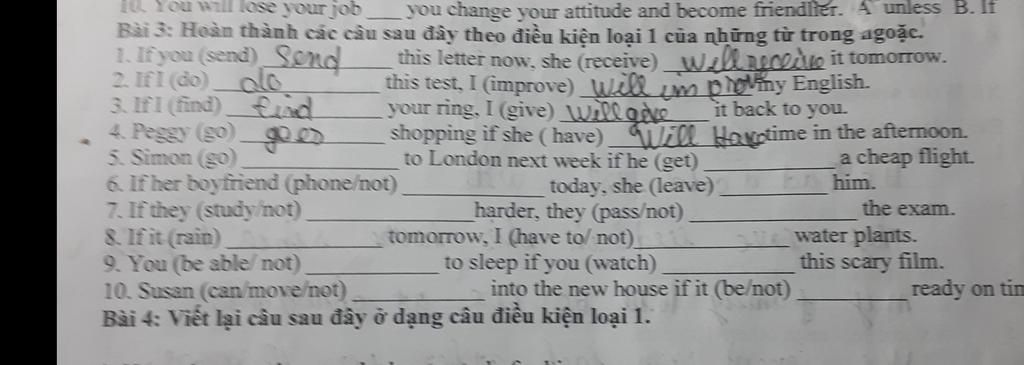 10. You will lose your job ___ you change your attitude and become friendlier. A unless B. If
Bài 3: Hoàn thành các câu sau đây theo điều kiện loại 1 của những từ trong ngoặc.
1. If you (send) Send this letter now, she (receive) will receive it tomorrow.
2. If I (do) do this test, I (improve) will improve my English.
3. If I (find) find your ring, I (give) will give it back to you.
4. Peggy (go) goes shopping if she ( have) Will Have time in the afternoon.
5. Simon (go) ___ to London next week if he (get) ___ a cheap flight.
6. If her boyfriend (phone/not) ___ today, she (leave) ___ him.
7. If they (study/not) ___ harder, they (pass/not) ___ the exam.
8. If it (rain) ___ tomorrow, I (have to/ not) ___ water plants.
9. You (be able/ not) ___ to sleep if you (watch) ___ this scary film.
10. Susan (can/move/not) ___ into the new house if it (be/not) ___ ready on tim
Bài 4: Viết lại câu sau đây ở dạng câu điều kiện loại 1.